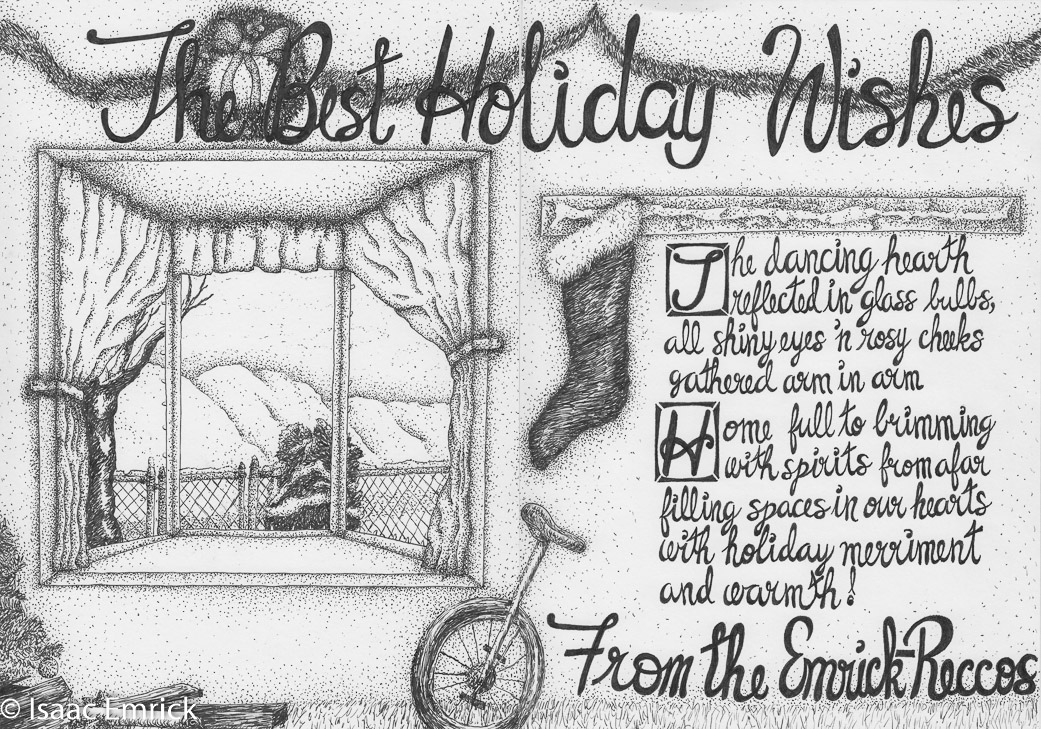 The Best Holiday Wishes
The dancing hearth
reflected in glass bulbs,
all shiny eyes 'n rosy cheeks
gathered arm in arm
Home full to brimming
with spirits from afar
filling spaces in our hearts
with holiday merriment
and warmth!
From the Emrick-Reccos
© Isaac Emrick